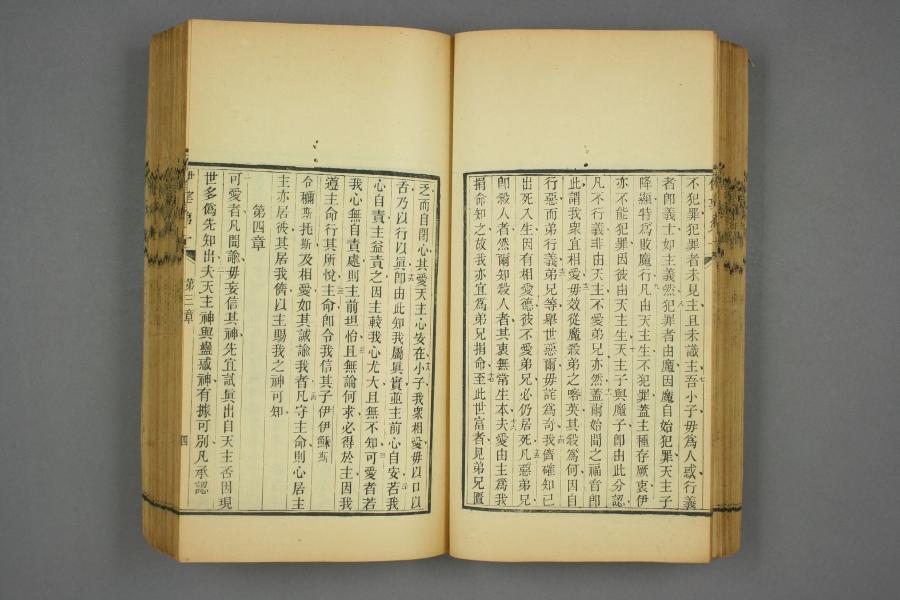 不犯罪犯罪者未見主且未識主吾小子毋爲人或行義
者卽義士如主義然犯罪者由魔因魔自始犯罪天主子
降顯特爲敗魔行凡由天主生不犯罪蓋主種存厥衷伊
亦不能犯罪因彼由天主生天主子與魔子卽由此分認
凡不行義非由天主不愛弟兄亦然蓋爾始聞之福音卽
此謂我衆宜相愛毋效從魔殺弟之喀英其殺爲何因自
行惡而弟行義弟兄等舉世惡爾毋詫爲奇我儕確知已
出死入生因有相愛德彼不愛弟兄必仍居死凡惡弟兄
卽殺人者然爾知殺人者其衷無常生本夫愛由主爲我
捐命知之故我亦宜爲弟兄捐命至此世富者見弟兄匱
乏而自閉心其愛天主心安在小子我衆相愛毋以口以
舌乃以行以眞卽由此知我屬眞實並主前心自安若我
心自責主益責之因主較我心尤大且無不知可愛者若
我心無自責處則主前坦怡且無論何求必得於主因我
遵主命行其所悅主命卽令我信其子伊伊穌斯
合穪斯托斯及相愛如其誡諭我者凡守主命則心居主
主亦居彼其居我儕以主賜我之神可知
第四章
可愛者凡聞諭毋妄信其神先宜試眞出自天主否因現
世多僞先知出夫天主神與蠱惑神有據可別凡承認
第三章
四